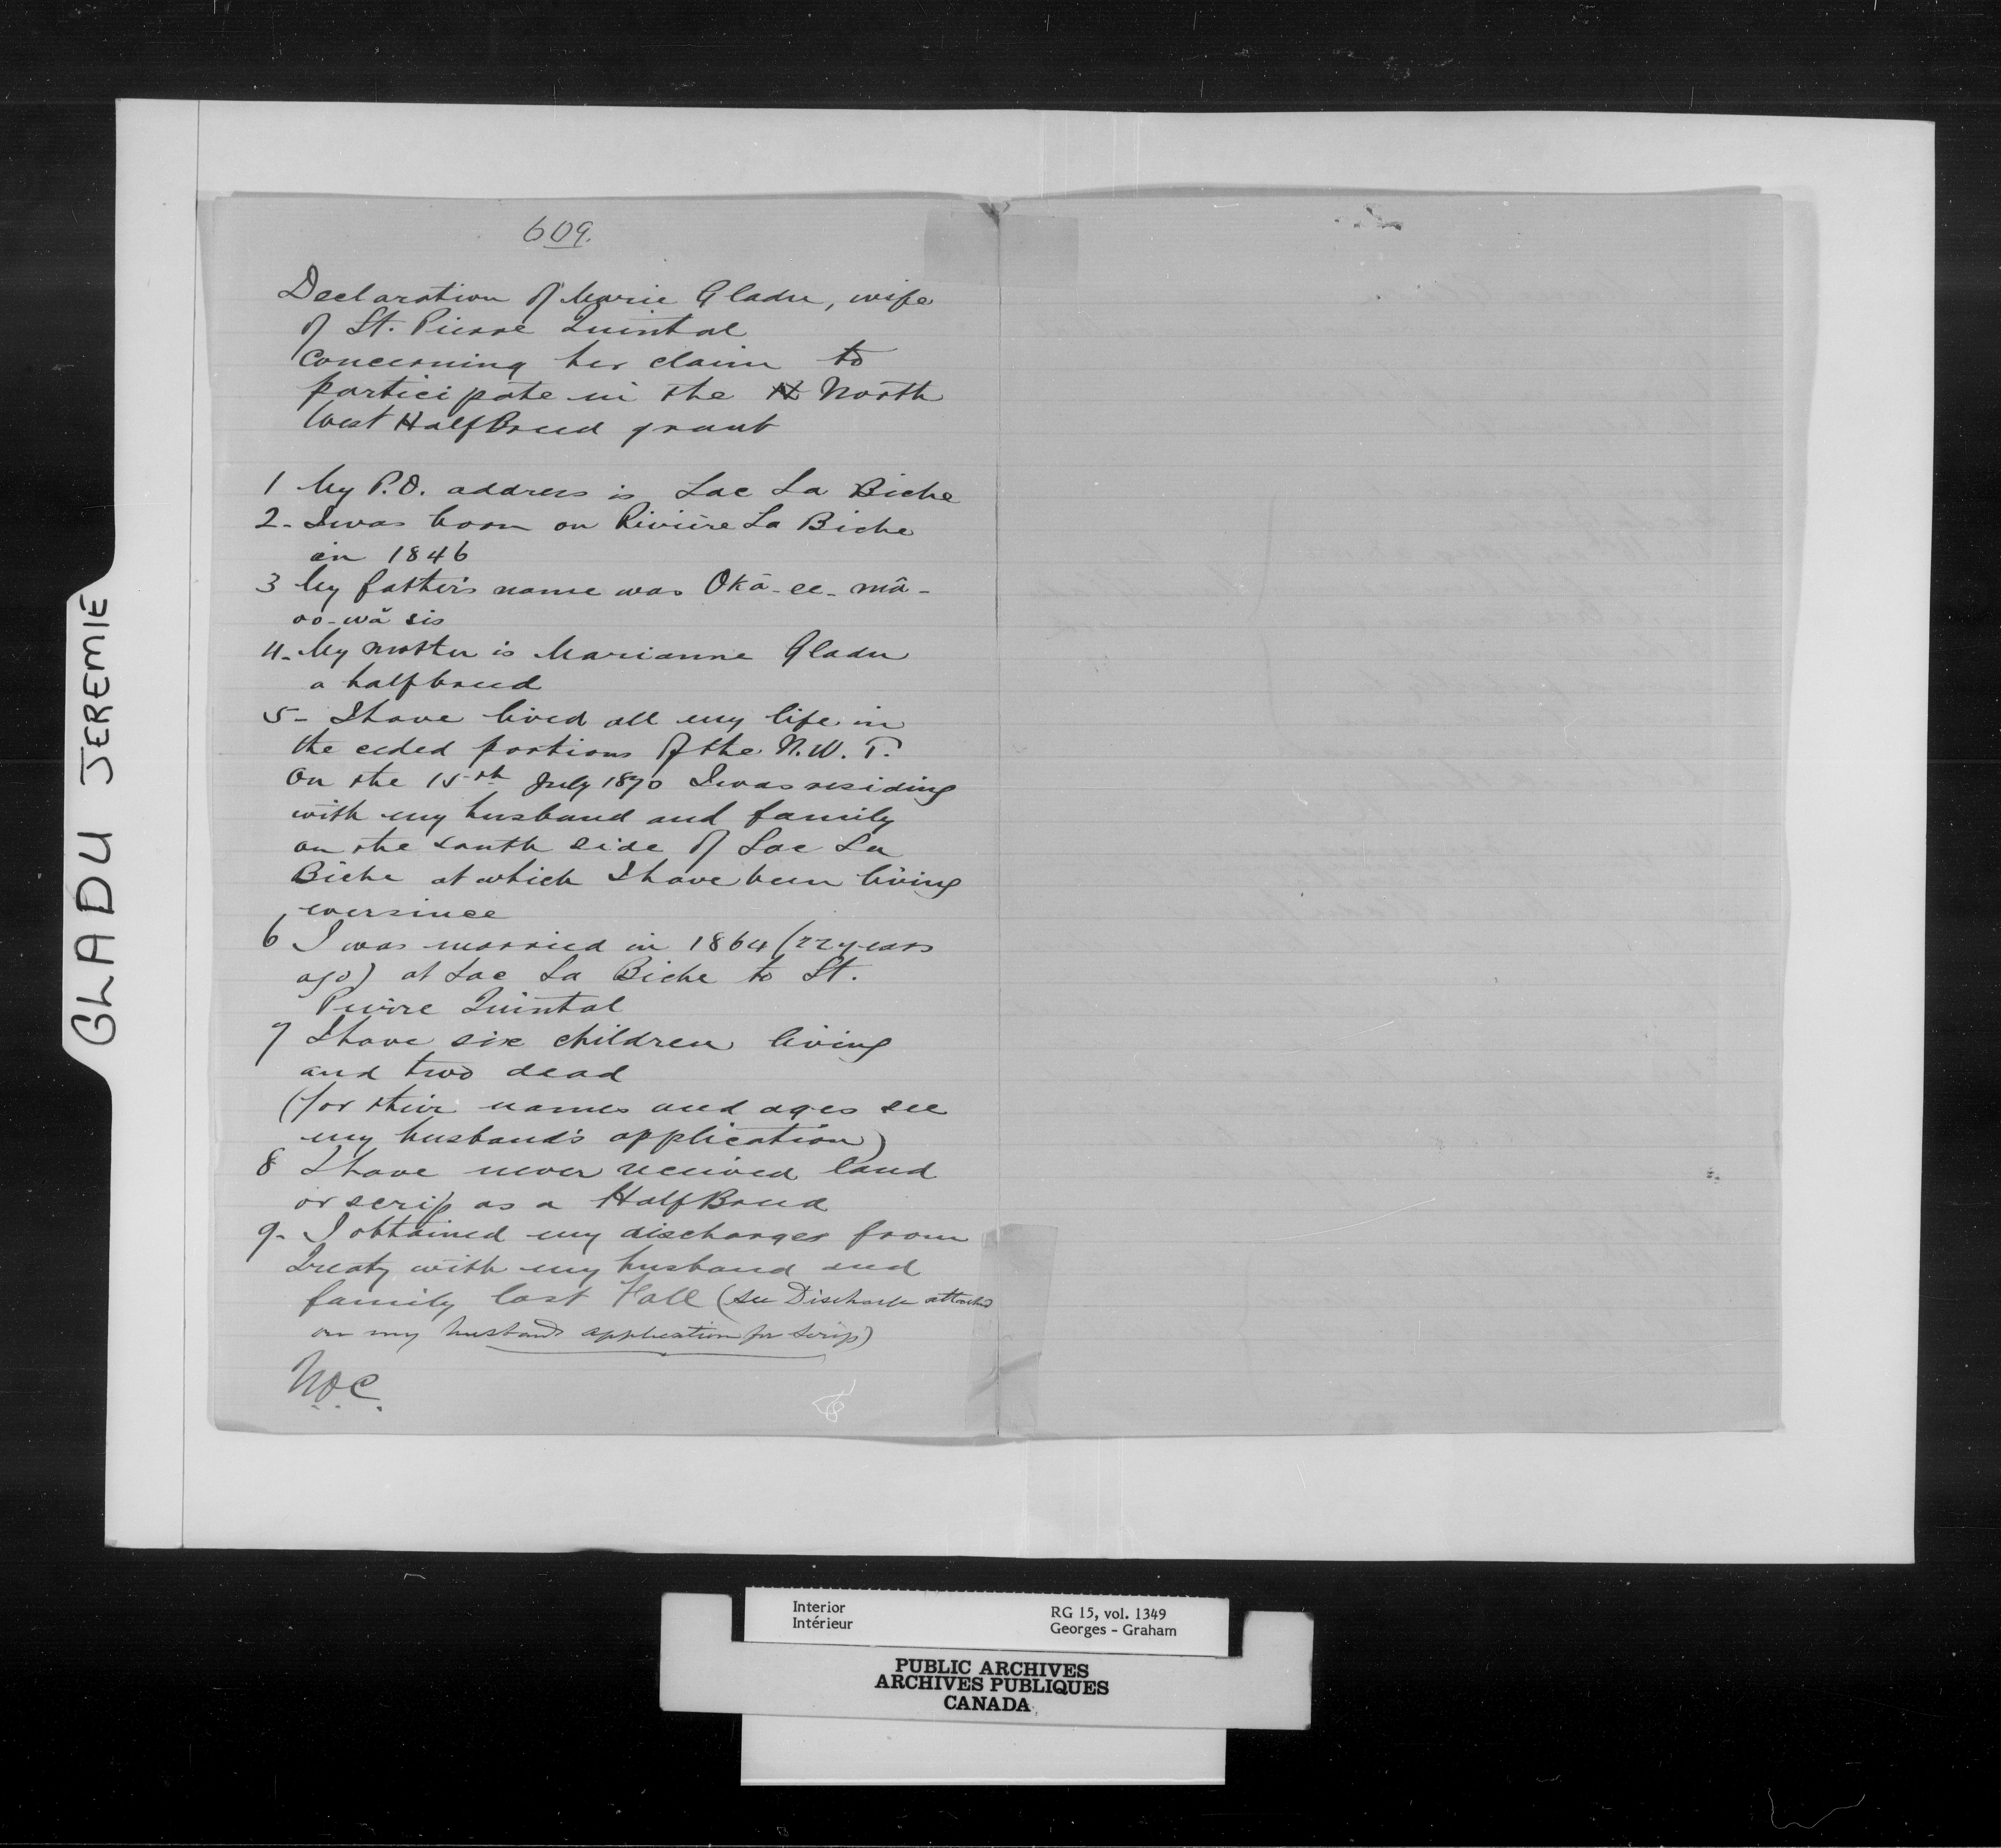 609.
Declaration of Marie Gladu, wife
of St. Pierre Quintal
concerning her claim to
participate in the N North
West HalfBreed grant
1 My P.O. address is Lac La Biche
2- I was born on Rivière La Biche
in 1846
3 My father's name was Okā-ee-mâ-
oo-wā sis
4- My mother is Marianne Gladu
a halfbreed
5- I have lived all my life in
the ceded portions of the N.W.T.
On the 15th July 1870 I was residing
with my husband and family
on the south side of Lac La
Biche at which I have been living
ever since
6 I was married in 1864 (22 years
ago) at Lac La Biche to St.
Pierre Quintal
7 I have six children living
and two dead
(for their names and ages see
my husband's application)
8 I have never received land
or scrip as a HalfBreed
9- I obtained my discharge from
Treaty with my husband and
family last Fall (see Discharge attached
on my husbands application for Scrip)
GLADU JEREMIE
Interior
Intérieur
RG 15, vol. 1349
Georges - Graham
PUBLIC ARCHIVES
ARCHIVES PUBLIQUES
CANADA